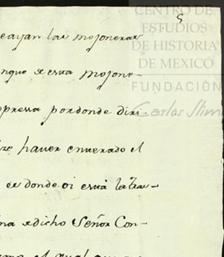 5
CENTRO DE
ESTUDIOS
DE HISTORIA
DE MEXICO
FUNDACIÓN
Carlos Slim
cayan las mojoneras
nque esta mojone-
opressa por donde divi-
haver enterado el
es donde oi está la tra-
na edicho Señor Con-